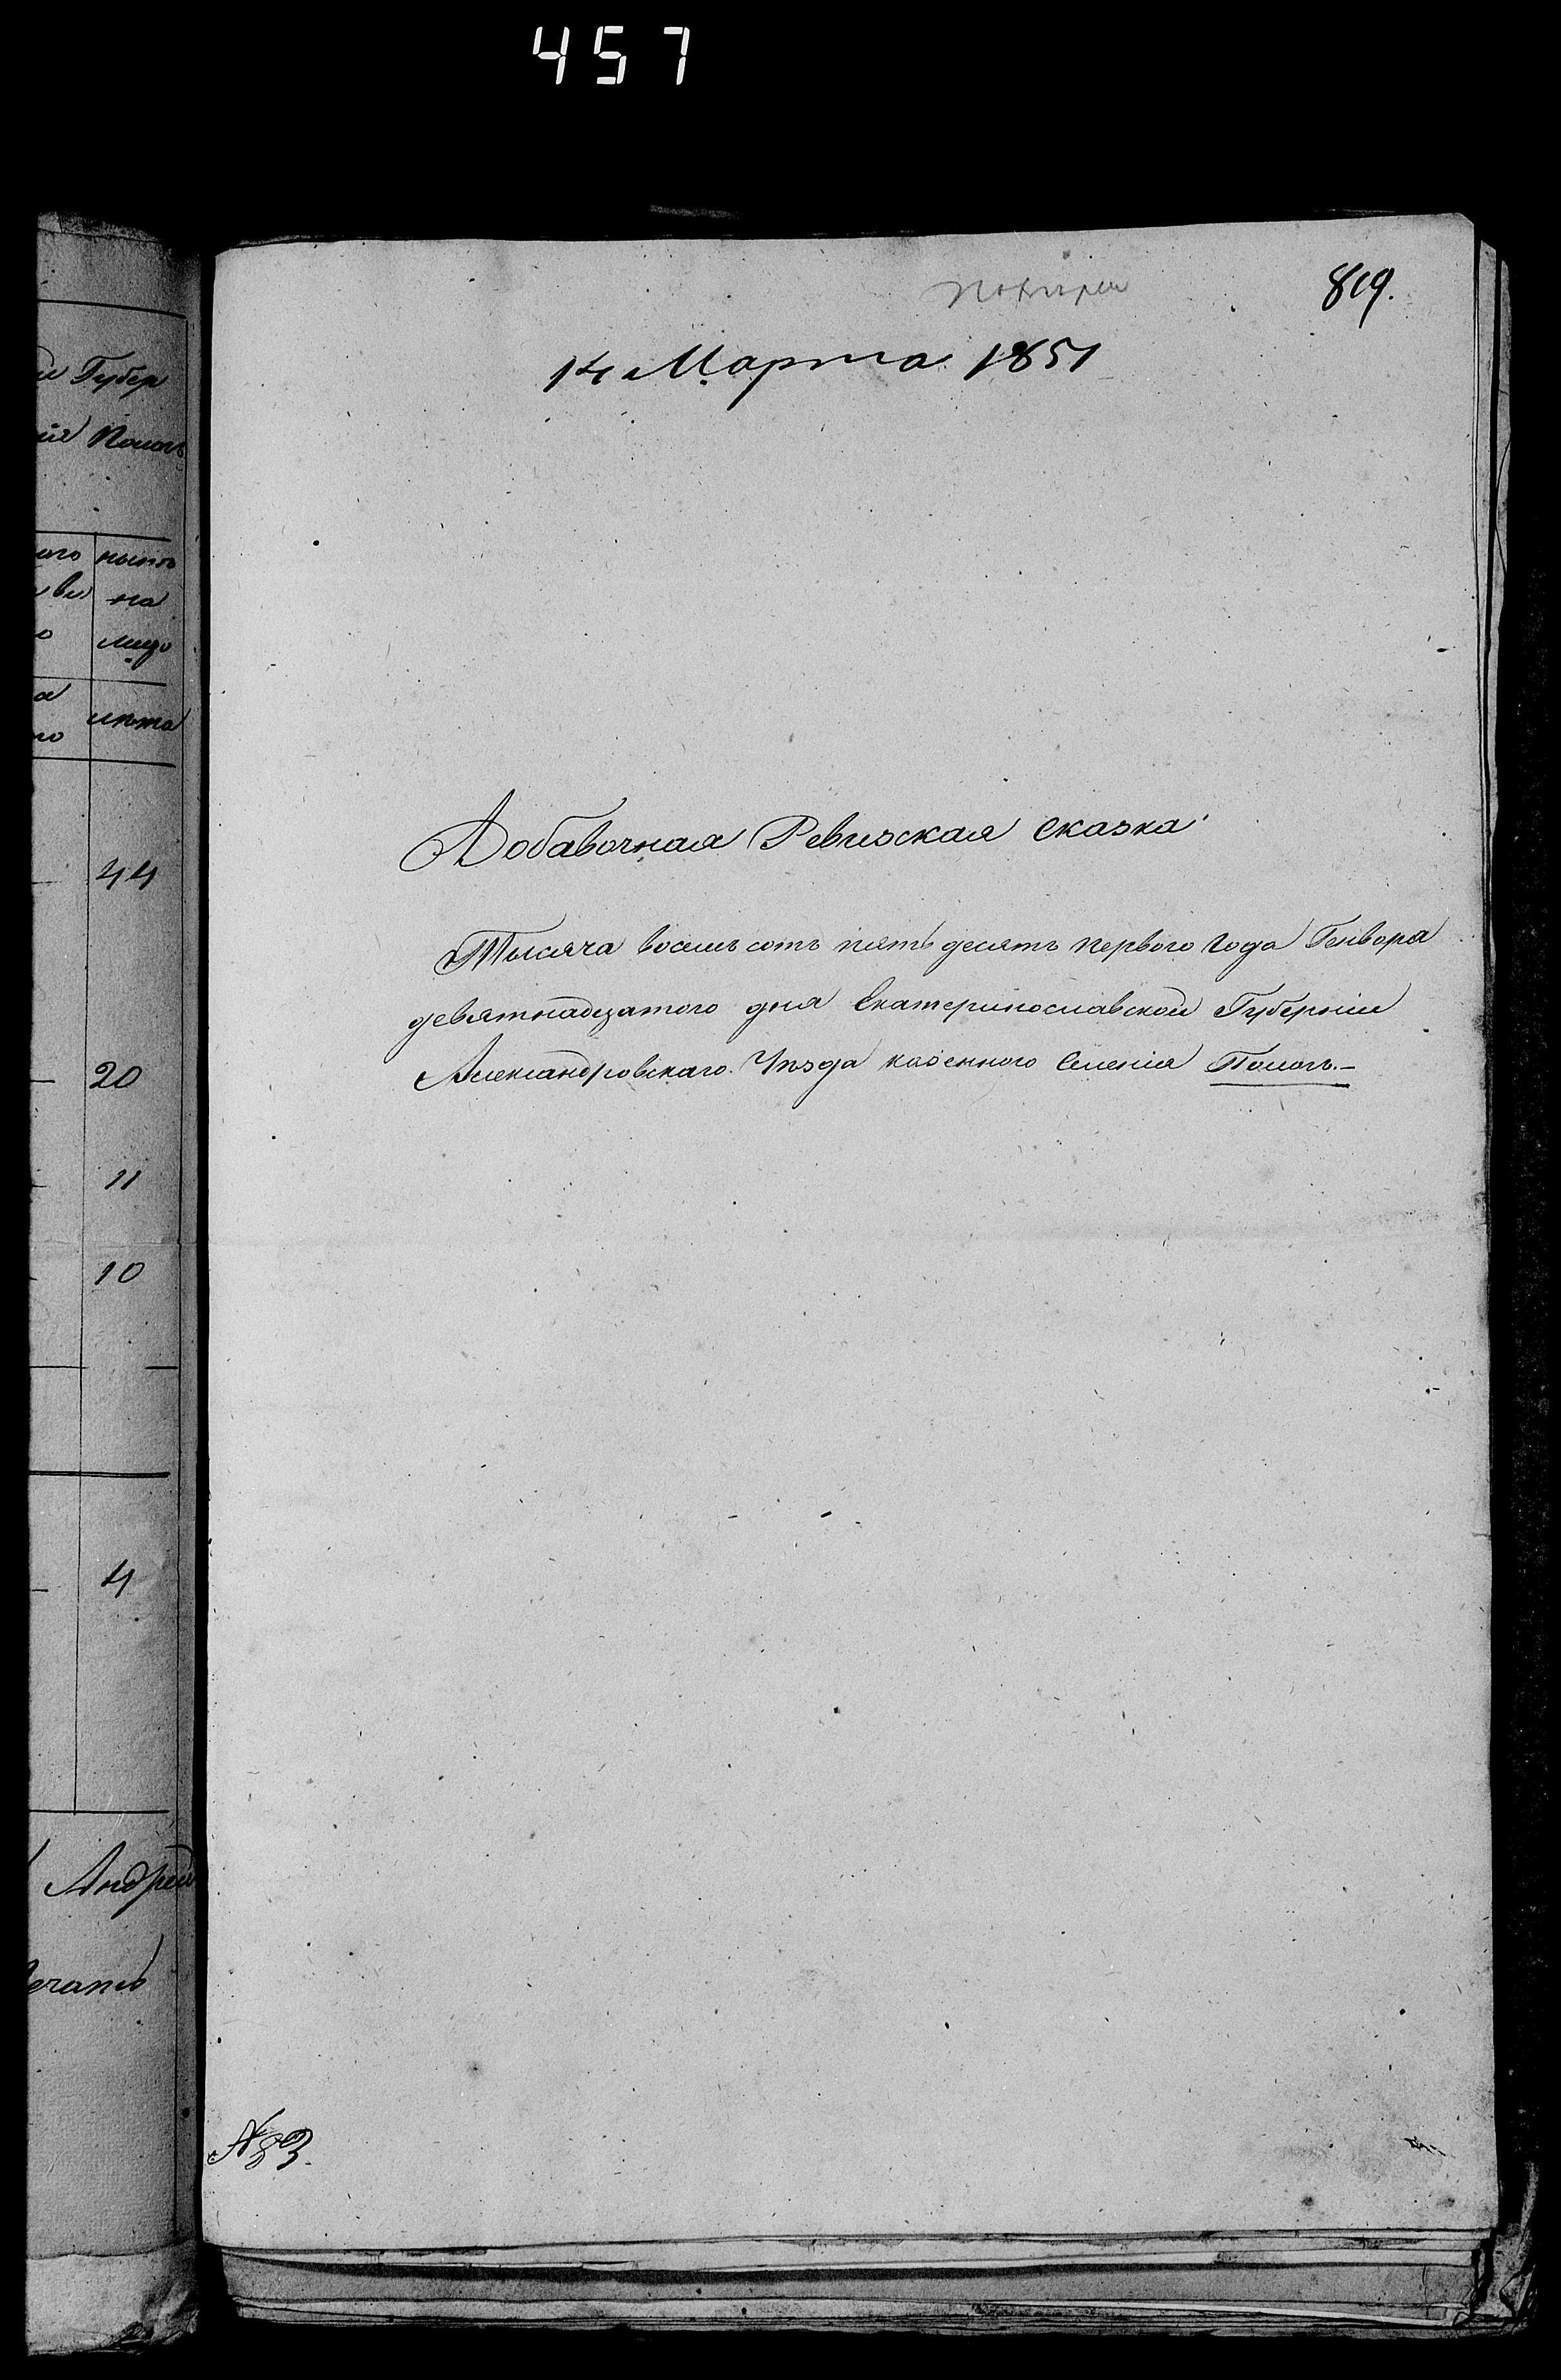 457
819.
14 Марта 1851
Добавочная Ревизская сказка
Тысяча восемь сотъ пять десятъ перваго года Генваря
девятнадцатого дня Екатеринославской Губерніи
Александровскаго Уѣзда казенного Селенія Пологъ.-
№ 83.
Губер
Полог
ныне
на
лицо
лѣта
44
20
11
10
4
Андрей